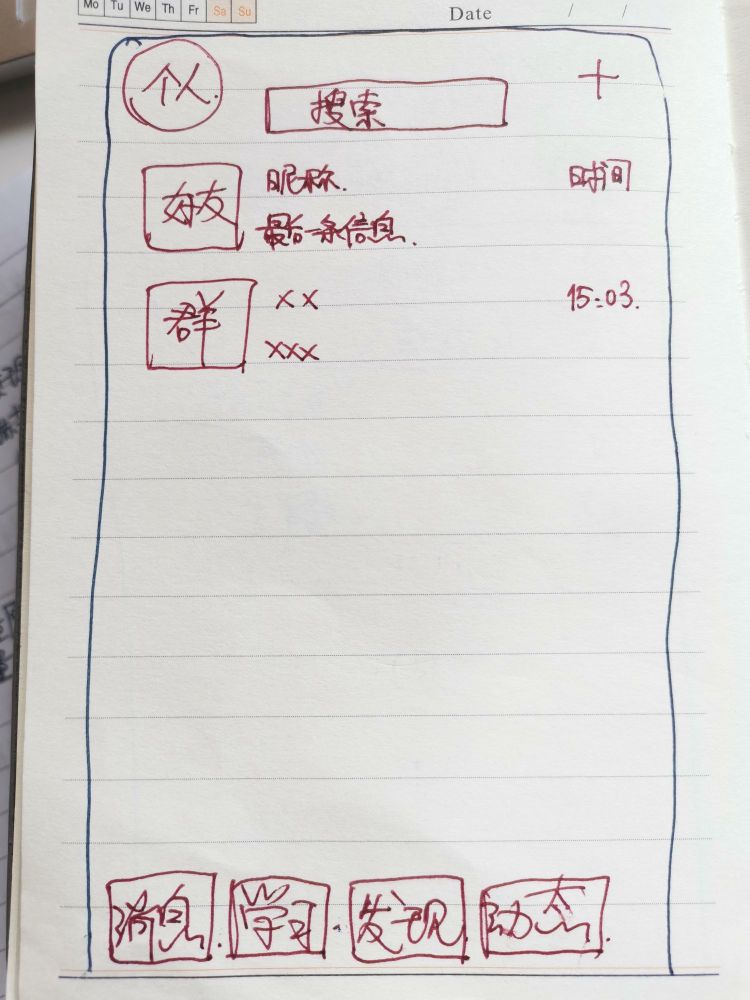 Mo Tu We Th Fr Sa Su
Date / /
个人
搜索
+
好友
昵称.
时间
最后一条信息.
群
xx
15:03.
xxx
消息.
学习.
发现
动态.